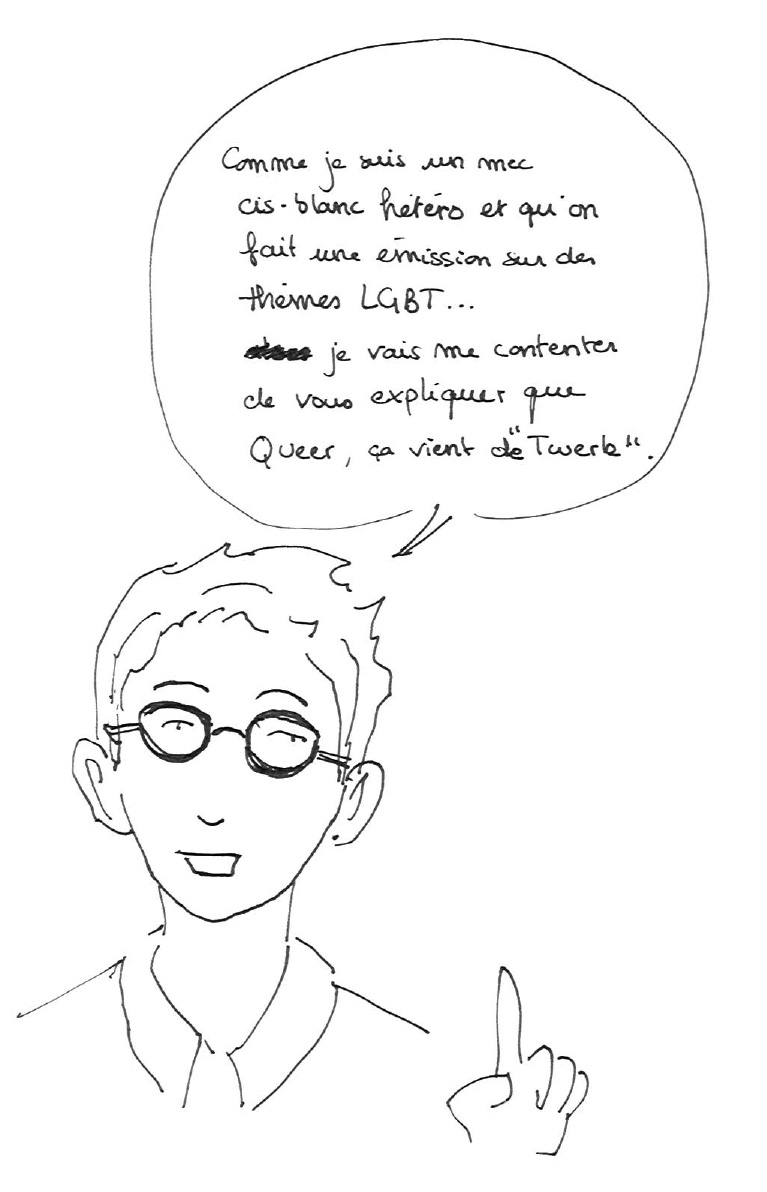 Comme je suis un mec
cis-blanc hétéro et qu'on
fait une émission sur des
thèmes LGBT...
je vais me contenter
de vous expliquer que
Queer, ça vient de "Twerk".